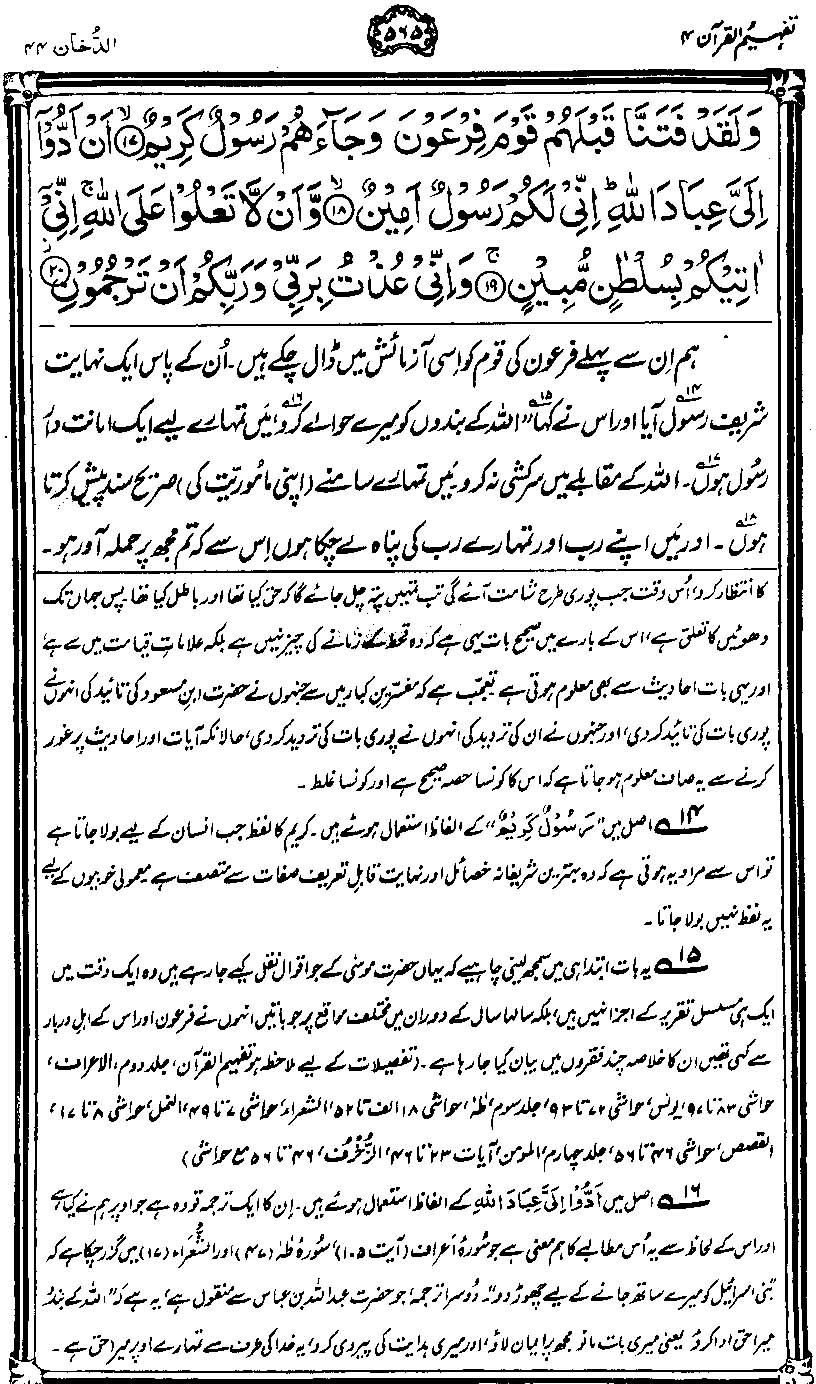 تفہیم القرآن ۴
۵۶۵
الدُّخان ۴۴
وَلَقَدْ فَتَنَّا قَبْلَهُمْ قَوْمَ فِرْعَوْنَ وَجَآءَهُمْ رَسُوْلٌ كَرِيْمٌ ﴿۱۷﴾ۙ اَنْ اَدُّوْٓا
اِلَيَّ عِبَادَ اللّٰهِ ؕ اِنِّيْ لَكُمْ رَسُوْلٌ اَمِيْنٌ ﴿۱۸﴾ۙ وَّاَنْ لَّا تَعْلُوْا عَلَى اللّٰهِ ۚ اِنِّيْٓ
اٰتِيْكُمْ بِسُلْطٰنٍ مُّبِيْنٍ ﴿۱۹﴾ۚ وَاِنِّيْ عُذْتُ بِرَبِّيْ وَرَبِّكُمْ اَنْ تَرْجُمُوْنِ ﴿۲۰﴾
ہم اِن سے پہلے فرعون کی قوم کو اسی آزمائش میں ڈال چکے ہیں۔ اُن کے پاس ایک نہایت
شریف رسول۱۴ آیا اور اس نے کہا۱۵ ”اللہ کے بندوں کو میرے حوالے کرو۱۶، مَیں تمہارے لیے ایک امانت دار
رسول ہوں۱۷۔ اللہ کے مقابلے میں سرکشی نہ کرو۔ مَیں تمہارے سامنے (اپنی ماموریت کی) صریح سند پیش کرتا
ہوں۱۸۔ اور مَیں اپنے رب اور تمہارے رب کی پناہ لے چکا ہوں اِس سے کہ تم مجھ پر حملہ آور ہو۔
کا انتظار کرو، اُس وقت جب پوری طرح شامت آئے گی تب تمہیں پتہ چل جائے گا کہ حق کیا تھا اور باطل کیا تھا۔ پس جہاں تک
دھوئیں کا تعلق ہے، اس کے بارے میں صحیح بات یہی ہے کہ وہ قحط کے زمانے کی چیز نہیں ہے بلکہ علاماتِ قیامت میں سے ہے
اور یہی بات احادیث سے بھی معلوم ہوتی ہے۔ تعجب ہے کہ مفسّرینِ کبار میں سے جنہوں نے حضرت ابنِ مسعود کی تائید کی انہوں نے
پوری بات کی تائید کر دی، اور جنہوں نے ان کی تردید کی انہوں نے پوری بات کی تردید کر دی، حالانکہ آیات اور احادیث پر غور
کرنے سے یہ صاف معلوم ہو جاتا ہے کہ اس کا کونسا حصہ صحیح ہے اور کونسا غلط۔
۱۴ے اصل میں ”رَسُوْلٌ كَرِيْمٌ“ کے الفاظ استعمال ہوئے ہیں۔ کریم کا لفظ جب انسان کے لیے بولا جاتا ہے
تو اس سے مراد یہ ہوتی ہے کہ وہ بہترین شریفانہ خصائل اور نہایت قابلِ تعریف صفات سے متصف ہے۔ معمولی خوبیوں کے لیے
یہ لفظ نہیں بولا جاتا۔
۱۵ے یہ بات ابتدا ہی میں سمجھ لینی چاہیے کہ یہاں حضرت موسیٰ کے جو اقوال نقل کیے جا رہے ہیں وہ ایک وقت میں
ایک ہی مسلسل تقریر کے اجزا نہیں ہیں، بلکہ سالہا سال کے دوران میں مختلف مواقع پر جو باتیں انہوں نے فرعون اور اس کے اہلِ دربار
سے کہی تھیں ان کا خلاصہ چند فقروں میں بیان کیا جا رہا ہے۔ (تفصیلات کے لیے ملاحظہ ہو تفہیم القرآن، جلد دوم، الاعراف،
حواشی ۸۳ تا ۹۷، یونس، حواشی ۷۲ تا ۹۳، جلد سوم، طٰہٰ، حواشی ۱۸ الف تا ۵۲، الشعراء، حواشی ۷ تا ۴۹، النمل، حواشی ۸ تا ۱۷،
القصص، حواشی ۴۶ تا ۵۶، جلد چہارم، المومن، آیات ۲۳ تا ۴۶، الزُّخْرُف، ۴۶ تا ۵۶ مع حواشی)
۱۶ے اصل میں اَدُّوْا اِلَيَّ عِبَادَ اللّٰهِ کے الفاظ استعمال ہوئے ہیں۔ اِن کا ایک ترجمہ تو وہ ہے جو اوپر ہم نے کیا ہے،
اور اس کے لحاظ سے یہ اُس مطالبے کا ہم معنی ہے جو سُورۂ اعراف (آیت ۱۰۵)، سُورۂ طٰہٰ (۴۷)، اور الشُّعَراء (۱۷) میں گزر چکا ہے کہ
”بنی اسرائیل کو میرے ساتھ جانے کے لیے چھوڑ دو“۔ دُوسرا ترجمہ، جو حضرت عبداللہ بن عباس سے منقول ہے، یہ ہے کہ ”اللہ کے بندو
میرا حق ادا کرو“، یعنی میری بات مانو، مجھ پر ایمان لاؤ، اور میری ہدایت کی پیروی کرو، یہ خدا کی طرف سے تمہارے اوپر میرا حق ہے۔